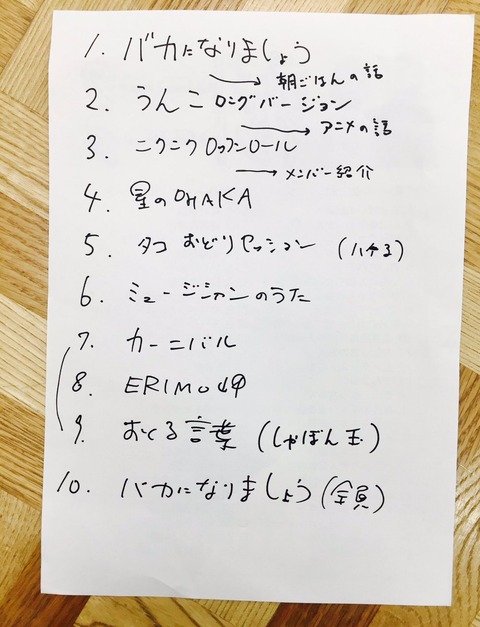 1. バカになりましょう
→ 朝ごはんの話
2. うんこ ロングバージョン
→ アニメの話
3. ニクニクロックンロール
→ メンバー紹介
4. 星のOHAKA
5. タコ おどりセッション (ハチ子)
6. ミュージシャンのうた
7. カーニバル
8. ERIMO
9. おくる言葉 (しゃぼん玉)
10. バカになりましょう (全員)